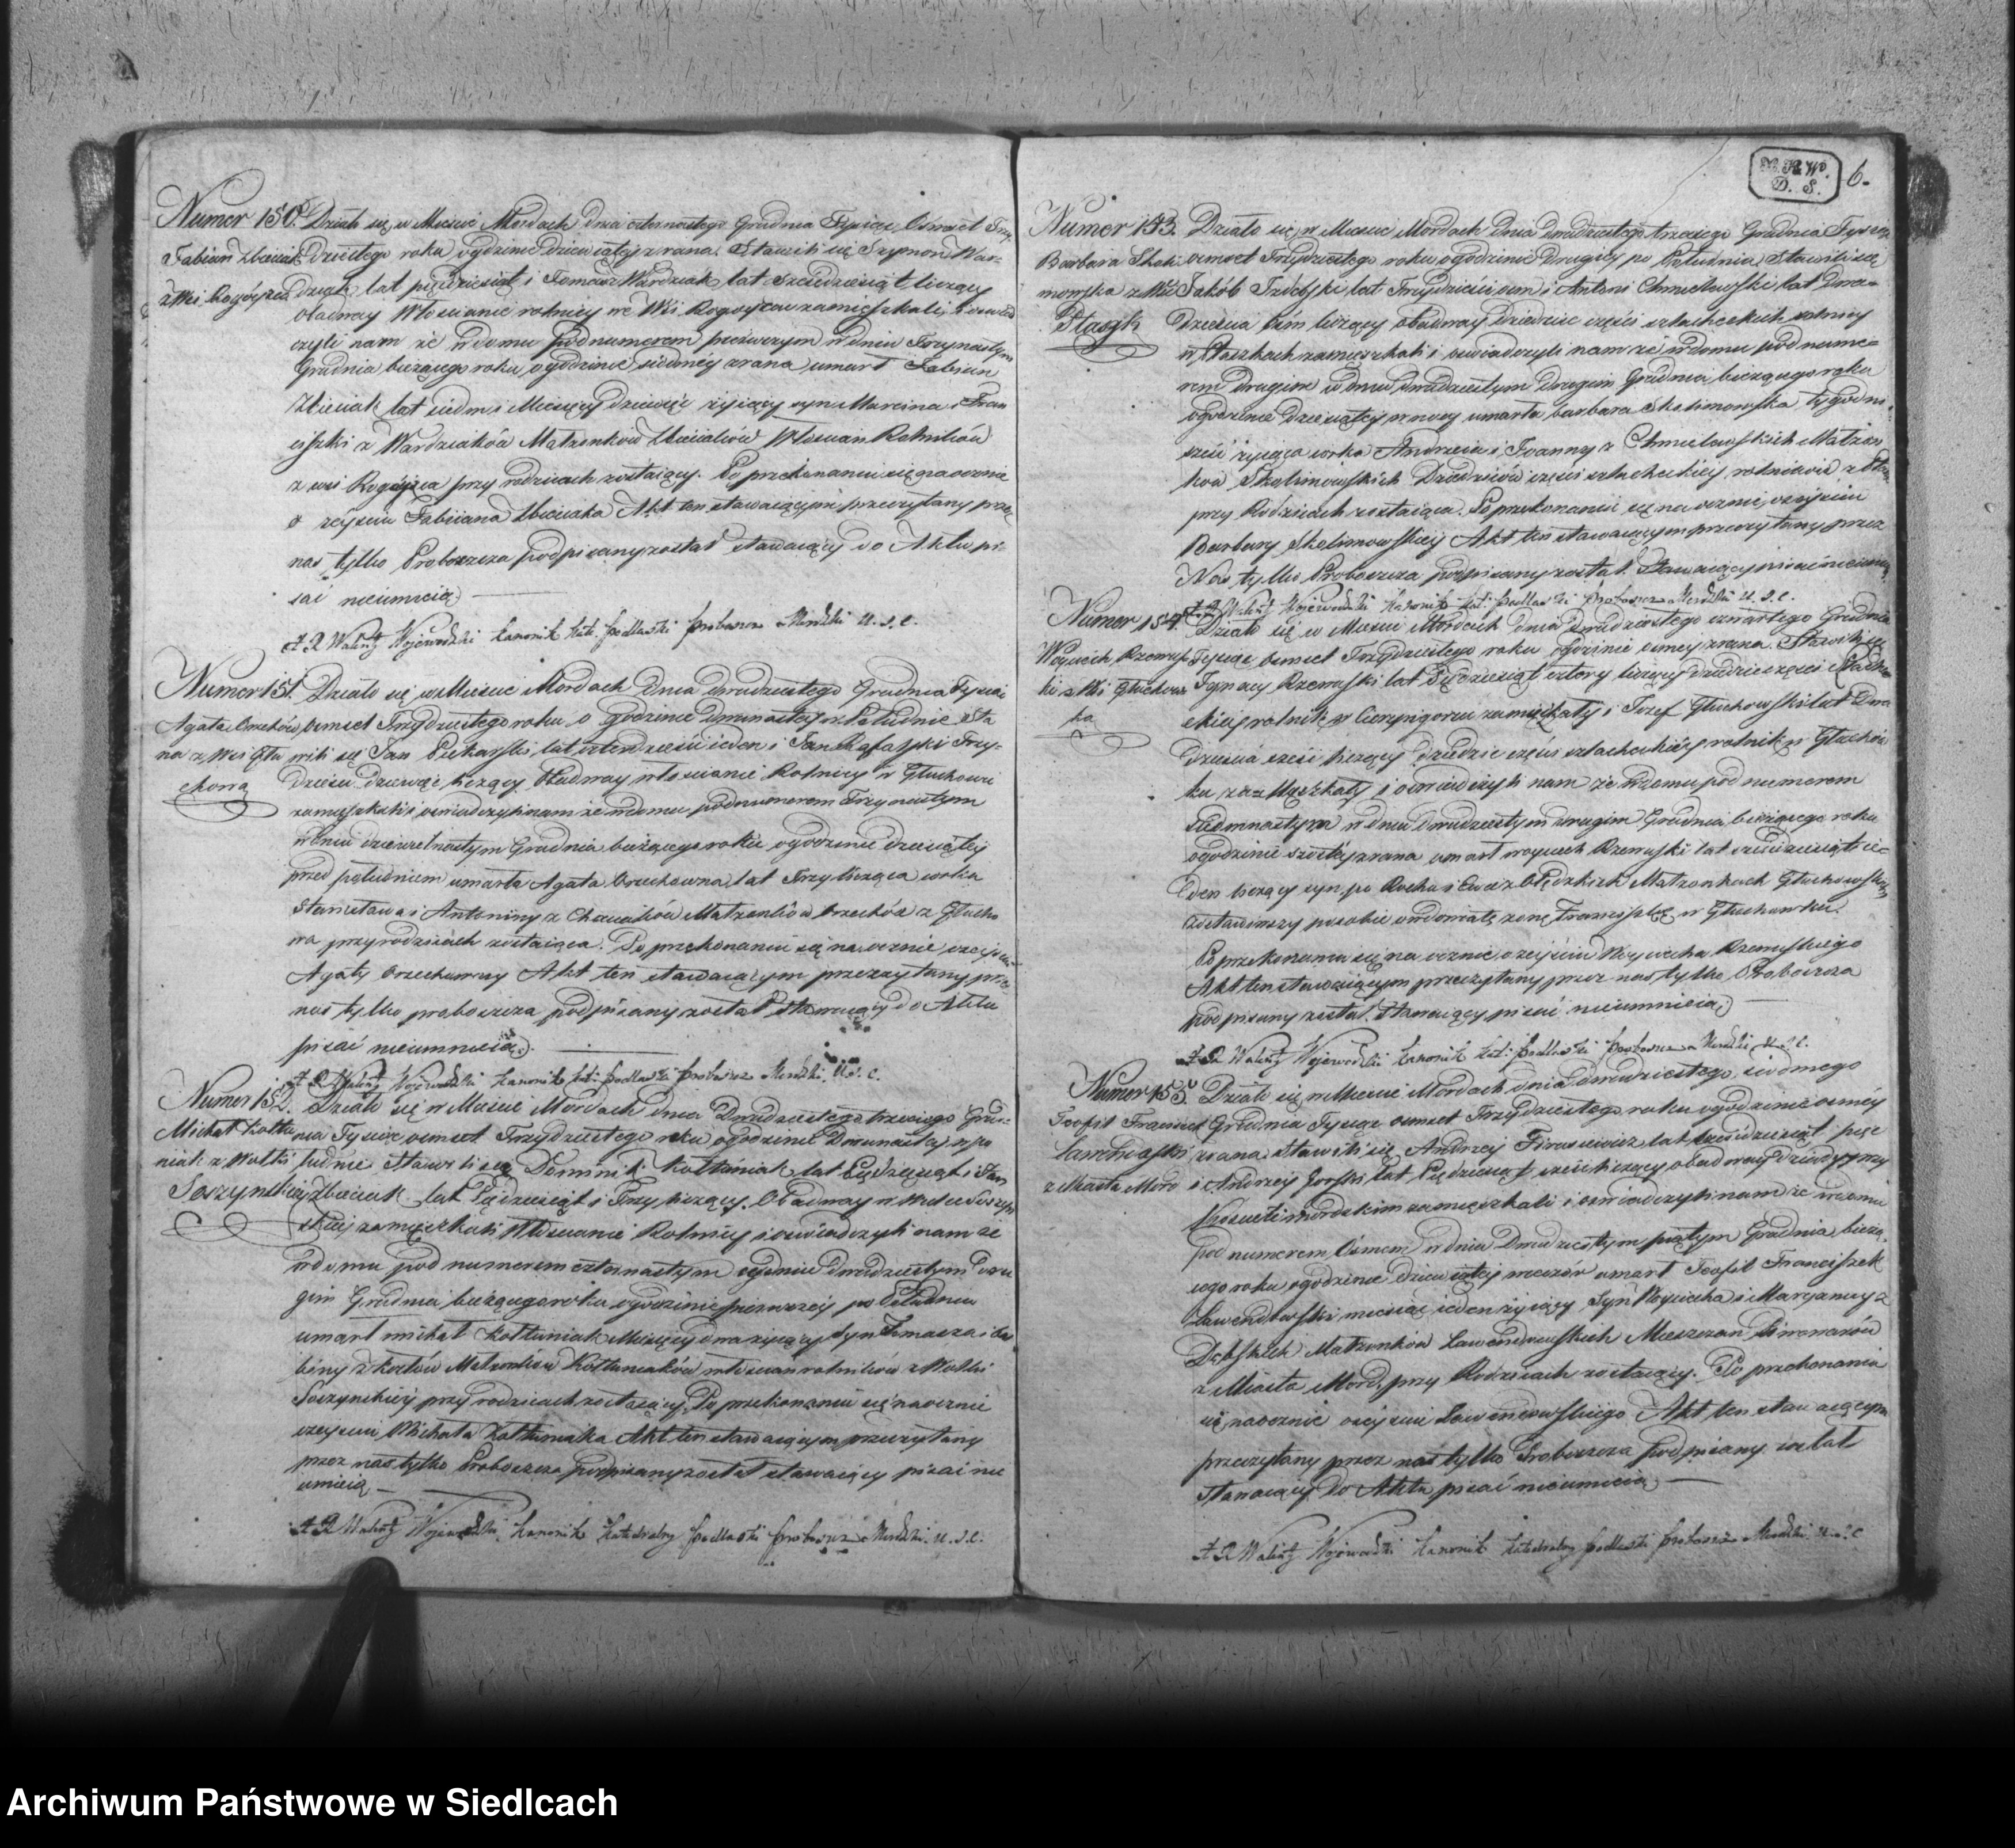 Numer 150. Działo się w Mieście Mordach dnia czternastego Grudnia Tysiąc Osmset Trzy-
Fabian Zbieciak dziestego roku o godzinie dziewiątej z rana. Stawili się Szymon War-
z Wsi Rogóyca dziak lat pięćdziesiąt i Tomasz Wardziak lat sześćdziesiąt liczący
obadway Włościanie rolnicy we Wsi Rogóyca zamieszkali, i oświad
czyli nam że w domu pod numerem pierwszym w dniu Trzynastym
Grudnia bieżącego roku o godzinie siódmey z rana umarł Fabian
Zbieciak lat siedm i Miesięcy dziewięć żyiący syn Marcina i Fran
ciszki z Wardziaków Małżonków Zbieciaków Włościan Rolników
z wsi Rogóyca przy rodzicach zostaiący. Po przekonaniu się naocznie
o zeyściu Fabiiana Zbieciaka Akt ten stawaiącym przeczytany przez
nas tylko Proboszcza podpisany został stawaiący do Aktu pi-
sać nieumieią.
X Walenty Wojewódzki Kanonik Kat. Podlaski Proboszcz Mordzki U. S. C.
Numer 151. Działo się w Mieście Mordach Dnia dwudziestego Grudnia Tysiąc
Agata Orzechów osmset Trzydziestego roku o godzinie dwunastey w Południe Sta
na z Wsi Głu wili się Jan Piekarski lat czterdzieści ieden i Jan Rafalski Trzy-
chowa dzieści dziewięć liczący Obadway włościanie Rolnicy w Głuchowie
zamieszkali i oświadczyli nam że w domu pod numerem Trzynastym
w dniu dziewiętnastym Grudnia bieżącego roku o godzinie dziesiątey
przed południem umarła Agata Orzechówna lat Trzy licząca córka
Stanisława i Antoniny z Małżonków Orzechów z Głucho
wa przy rodzicach zostaiąca. Po przekonaniu się naocznie o zeyściu
Agaty Orzechówny Akt ten stawaiącym przeczytany przez
nas tylko proboszcza podpisany został Stawaiący do Aktu
pisać nieumieią.
X Walenty Wojewódzki Kanonik Kat: Podlaski Proboszcz Mordzki U. S. C.
Numer 152. Działo się w Mieście Mordach dnia Dwudziestego trzeciego Gru-
Michał Kołtu nia Tysiąc osmset Trzydziestego roku o godzinie Dwunastey w po
niak z Wólki łudnie Stawili się Dominik Kołtuniak lat Pięćdziesiąt i Jan
Soszynskiey Zbieciak lat Pięćdziesiąt i Trzy liczący. Obadway w Wólce Soszyn
skiey zamieszkali Włościanie Rolnicy i oświadczyli nam że
w domu pod numerem czternastym w dniu dwudziestym Dru
gim Grudnia bieżącego roku o godzinie pierwszey po Południu
umarł Michał Kołtuniak Miesięcy dwa żyiący syn Tomasza i Sa
biny z Kozłów Małżonków Kołtuniaków włościan rolników z Wólki
Soszynskiey przy rodzicach zostaiący. Po przekonaniu się naocznie
o zeyściu Michała Kołtuniaka Akt ten stawaiącym przeczytany
przez nas tylko Proboszcza podpisany został stawaiący pisać nie
umieią.
X Walenty Wojewódzki Kanonik Katedralny Podlaski Proboszcz Mordzki. U. S. C.
M. K. W.
D. S.
6.
Numer 153. Działo się w Mieście Mordach Dnia dwudziestego trzeciego Grudnia Tysiąc
Barbara Skoli osmset Trzydziestego roku o godzinie Drugiey po Południu Stawili się
mowska z Wsi Jakób Izdebski lat Trzydzieści osm i Antoni Chmielewski lat Dwa-
Ptaszk dzieścia osm liczący obadway dziedzice części szlacheckich rolnicy
w Ptaszkach zamieszkali i oświadczyli nam że w domu pod nume-
rem drugim w dniu dwudziestym drugim Grudnia bieżącego roku
o godzinie dziesiątey w nocy umarła Barbara Skolimowska tygodni
sześć żyiąca córka Andrzeia i Joanny z Chmielewskich Małżon
ków Skolimowskich Dziedziców części szlacheckiey rolników z
przy Rodzicach zostaiąca. Po przekonaniu się naocznie o zeyściu
Barbary Skolimowskiey Akt ten stawaiącym przeczytany przez
Nas tylko Proboszcza podpisany został. Stawaiący pisać nieumieią.
X Walenty Wojewódzki Kanonik Kat: Podlaski Proboszcz Mordzki U. S. C.
Numer 154. Działo się w Mieście Mordach dnia dwudziestego czwartego Grudnia
Woyciech Rzewus Tysiąc osmset Trzydziestego roku o godzinie osmey z rana. Stawili się
ki z Wsi Głuchow Ignacy Rzewuski lat Pięćdziesiąt cztery liczący dziedzic części szlache
ka ckiey rolnik w Czerpigorzu zamieszkały i Jozef Głuchowski lat Dwa
dzieścia sześć liczący dziedzic części szlacheckiey rolnik w Głuchów
ku zamieszkały i oświadczyli nam że w domu pod numerem
siedmnastym w dniu dwudziestym drugim Grudnia bieżącego roku
o godzinie szóstey z rana umarł Woyciech Rzewuski lat sześćdziesiąt ie-
den liczący syn po Rochu i Ewie z Małżonkach
zostawiwszy po sobie owdowiałą żonę Franciszkę w Głuchówku.
Po przekonaniu się naocznie o zeyściu Woyciecha Rzewuskiego
Akt ten stawaiącym przeczytany przez nas tylko Proboszcza
podpisany został. Stawaiący pisać nieumieią.
X Walenty Wojewódzki Kanonik Kat: Podlaski Proboszcz Mordzki U. S. C.
Numer 155. Działo się w Mieście Mordach dnia dwudziestego siodmego
Teofil Franciszek Grudnia Tysiąc osmset Trzydziestego roku o godzinie osmey
Ławendowski z rana Stawili się Andrzey lat sześćdziesiąt pięć
z Miasta Mord i Andrzey Gorski lat Pięćdziesiąt sześć liczący obadway dziady przy
Kościele mordzkim zamieszkali i oświadczyli nam że w domu
pod numerem Osmem w dniu Dwudziestym piątym Grudnia bieżą
cego roku o godzinie dziewiątey wieczór umarł Teofil Franciszek
Ławendowski miesiąc ieden żyiący Syn Woyciecha i Maryanny z
Dębskich Małżonków Ławendowskich Mieszczan Piwowarów
z Miasta Mord, przy Rodzicach zostaiący. Po przekonaniu
się naocznie o zeyściu Ławendowskiego Akt ten stawaiącym
przeczytany przez nas tylko Proboszcza podpisany został
Stawaiący do Aktu pisać nieumieią.
X Walenty Wojewódzki Kanonik Katedralny Podlaski Proboszcz Mordzki U. S. C
Archiwum Państwowe w Siedlcach